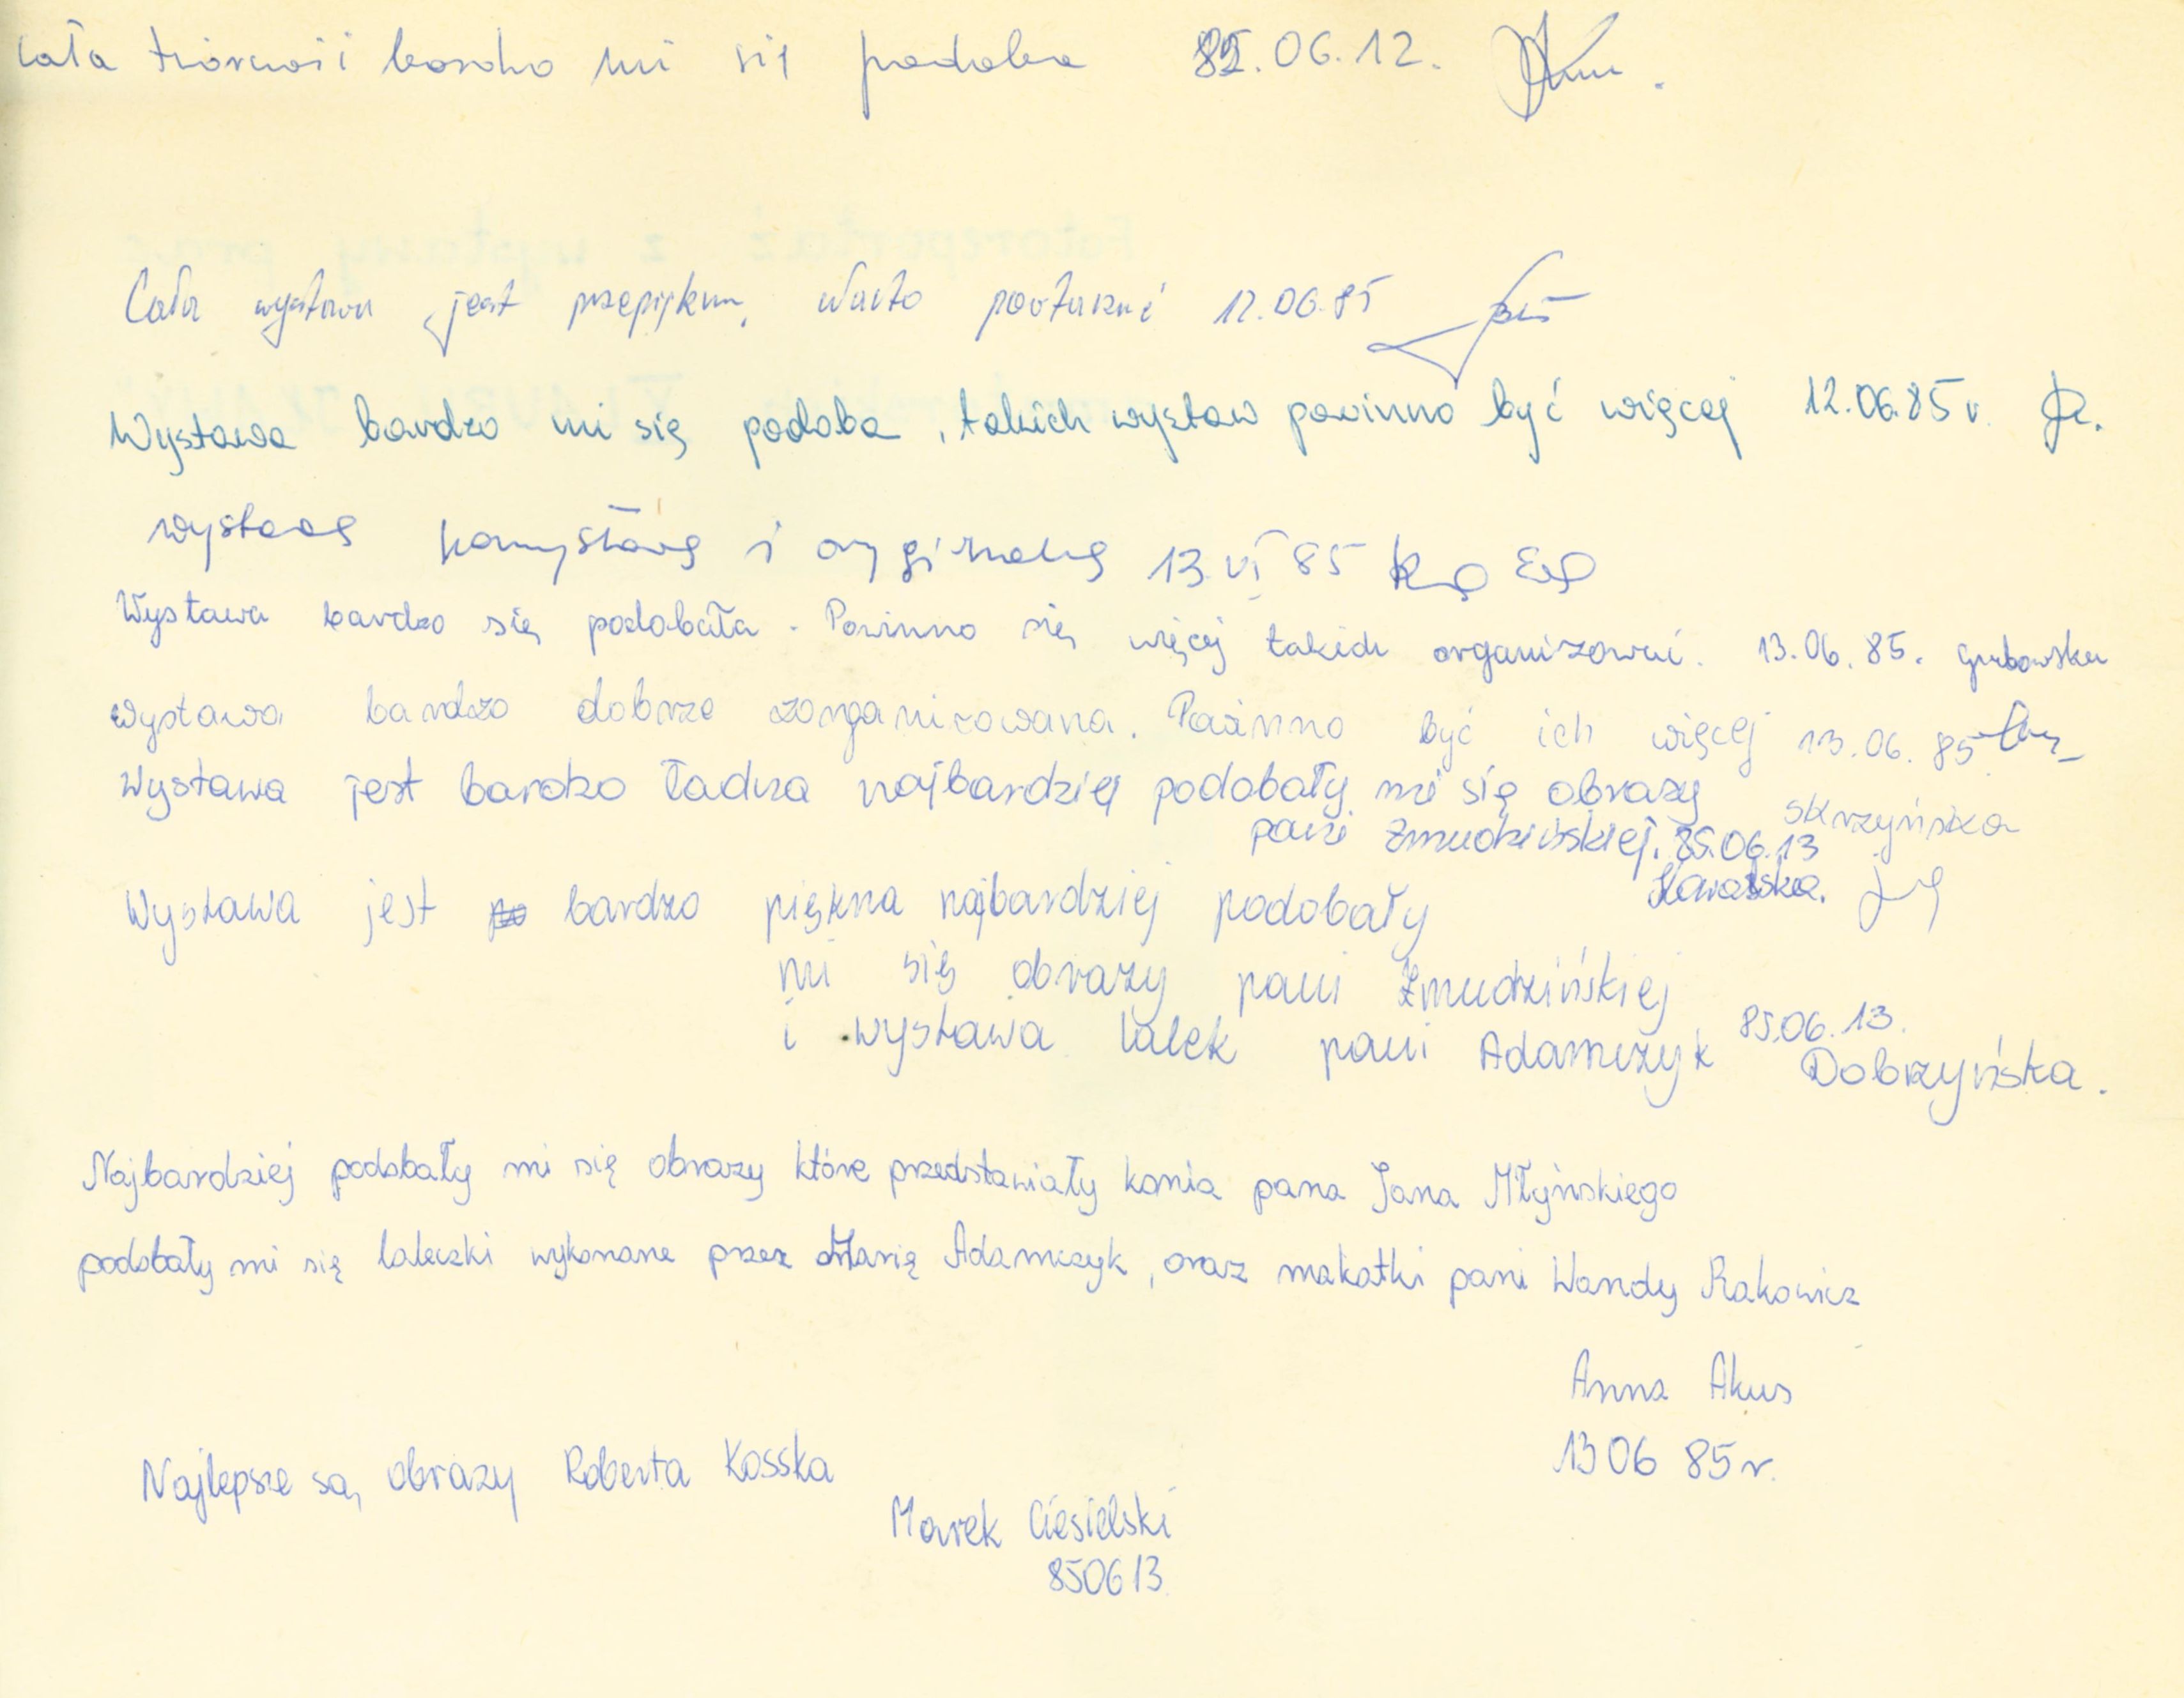 cała twórczość bardzo mi się podoba 85.06.12.
Cała wystawa jest przepiękna, warto powtarzać 12.06.85
Wystawa bardzo mi się podoba, takich wystaw powinno być więcej 12.06.85 r.
wystawa i oryginalna 13 VI 85
Wystawa bardzo się podobała. Powinno się więcej takich organizować. 13.06.85. Grabowska
Wystawa bardzo dobrze zorganizowana. Powinno być ich więcej 13.06.85
Wystawa jest bardzo ładna najbardziej podobały mi się obrazy
Skrzyńska
pani Żmudzińskiej. 85.06.13
Wystawa jest bardzo piękna najbardziej podobały
mi się obrazy pani Żmudzińskiej
i wystawa lalek pani Adamczyk 85.06.13.
Dobrzyńska.
Najbardziej podobały mi się obrazy które przedstawiały konia pana Jana Młyńskiego
podobały mi się laleczki wykonane przez Marię Adamczyk, oraz makatki pani Wandy Rakowicz
Anna Akus
13 06 85 r.
Najlepsze są obrazy Roberta Kosska
Marek Ciesielski
850613